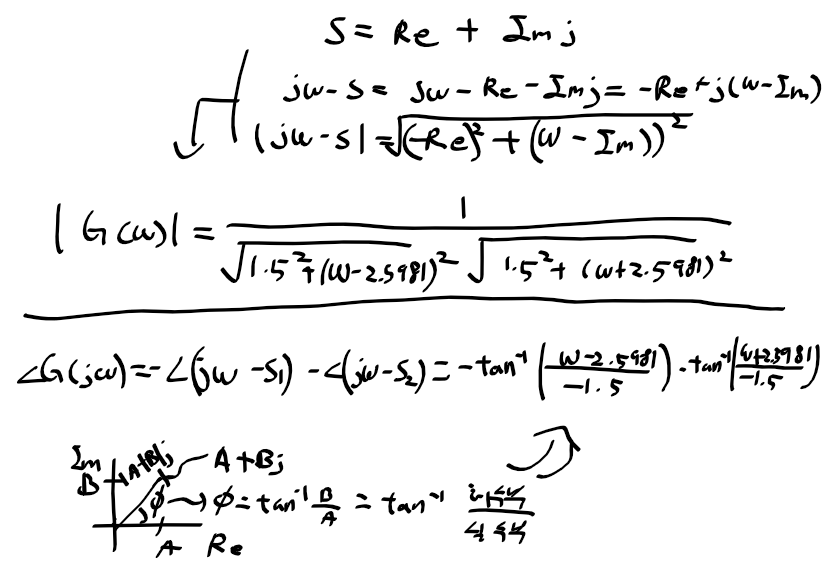 S = Re + Im j
jω - S = jω - Re - Im j = -Re + j(ω - Im)
|jω - S| = √(-Re)² + (ω - Im))²
|G(ω)| = 1 / √1.5² + (ω - 2.5981)² √1.5² + (ω + 2.5981)²
∠G(jω) = -∠(jω - S₁) - ∠(jω - S₂) = -tan⁻¹(ω - 2.5981 / -1.5) - tan⁻¹(ω + 2.5981 / -1.5)
Im
B
A+Bj
A+Bj
ϕ → ϕ = tan⁻¹ B/A = tan⁻¹
A Re